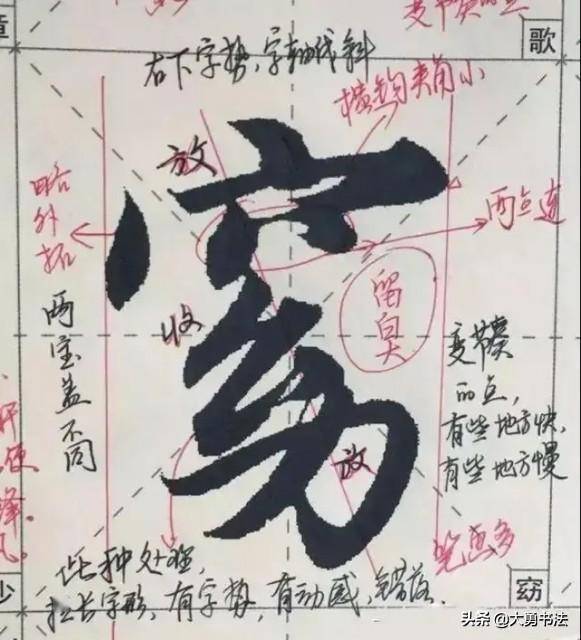 章
变节奏的点
歌
右下字势,字轴线斜
横钩夹角小
放
略外拓
两点连
窈
留白大
收
两宝盖不同
变节奏
的点,
有些地方快,
有些地方慢
放
笔画多
此种处理,
拉长字形,有字势,有动感,错落.
少
窈
头条 @大勇书法